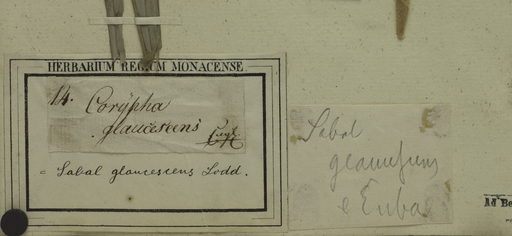 HERBARIUM REGIUM MONACENSE
14. Corypha
glaucescens
Sabal glaucescens Lodd.
Sabal
glaucescens
e Cuba